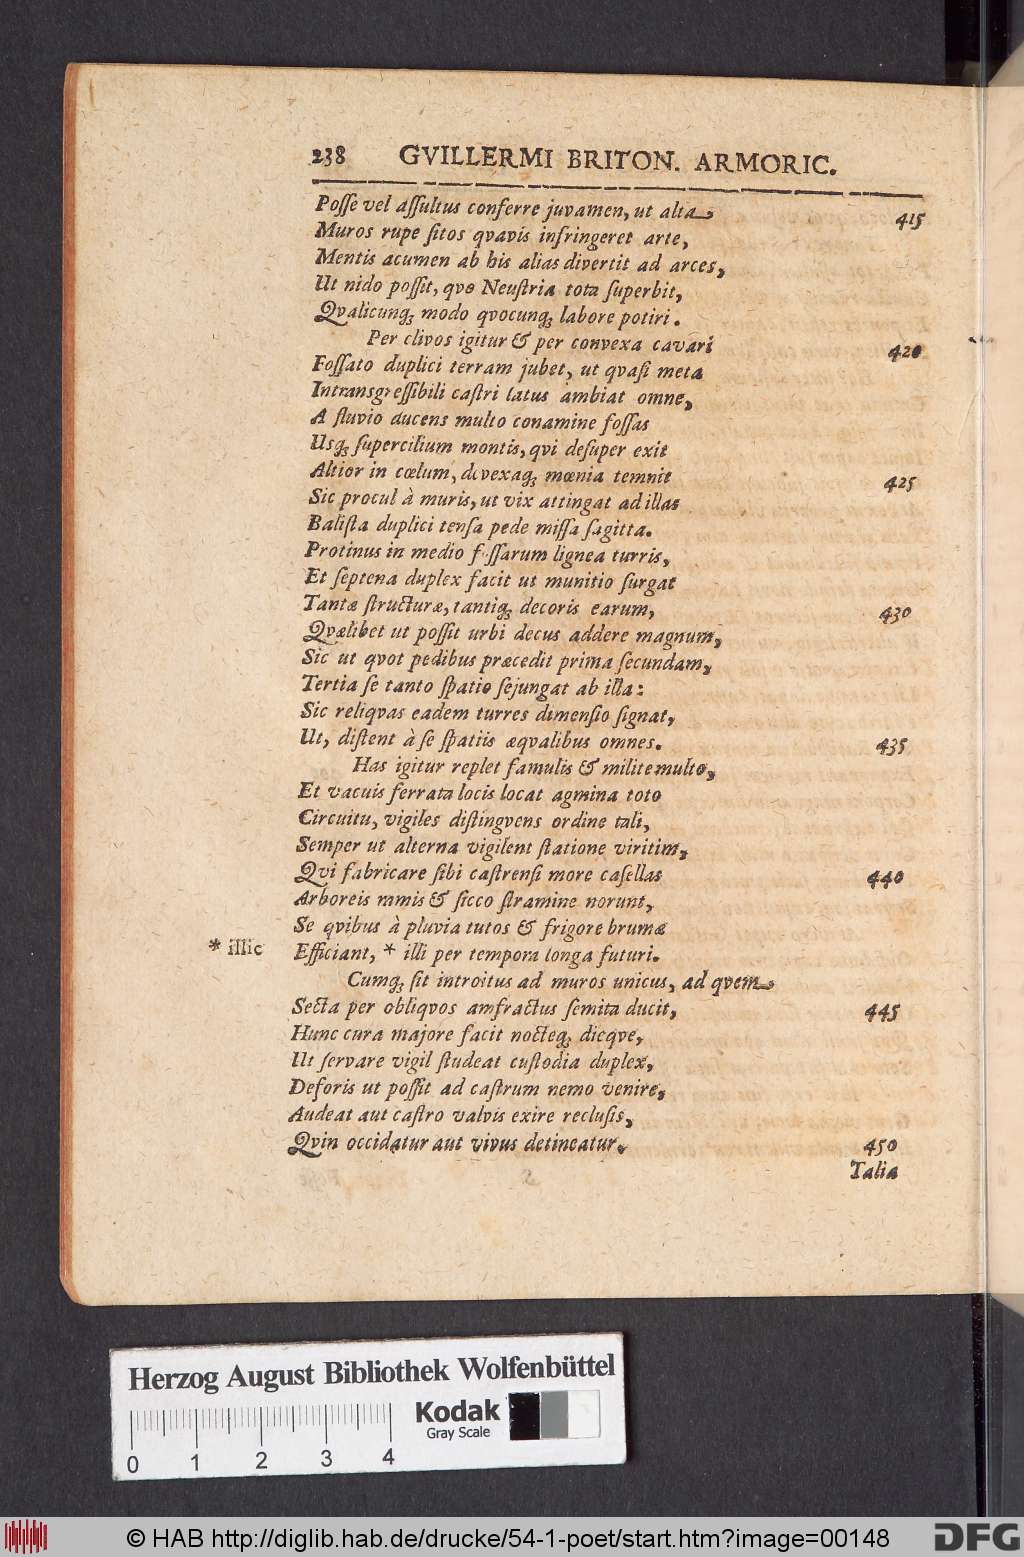 238 GVILLERMI BRITON. ARMORIC.
Posse vel assultus conferre juvamen, ut alta 415
Muros rupe sitos qvavis infringeret arte,
Mentis acumen ab his alias divertit ad arces,
Ut nido possit, qvo Neustria tota superbit,
Qvalicunq; modo qvocunq; labore potiri.
Per clivos igitur & per convexa cavari 420
Fossato duplici terram jubet, ut qvasi meta
Intransgressibili castri latus ambiat omne,
A fluvio ducens multo conamine fossas
Usq; supercilium montis, qvi desuper exit
Altior in cœlum, devexaq; mœnia temnit 425
Sic procul à muris, ut vix attingat ad illas
Balista duplici tensa pede missa sagitta.
Protinus in medio fossarum lignea turris,
Et septena duplex facit ut munitio surgat
Tantæ structuræ, tantiq; decoris earum, 430
Qvælibet ut possit urbi decus addere magnum,
Sic ut qvot pedibus præcedit prima secundam,
Tertia se tanto spatio sejungat ab illa:
Sic reliqvas eadem turres dimensio signat,
Ut, distent à se spatiis æqvalibus omnes. 435
Has igitur replet famulis & milite multo,
Et vacuis ferrata locis locat agmina toto
Circuitu, vigiles distingvens ordine tali,
Semper ut alterna vigilent statione viritim,
Qvi fabricare sibi castrensi more casellas 440
Arboreis ramis & sicco stramine norunt,
Se qvibus à pluvia tutos & frigore brumæ
* illic Efficiant, * illi per tempora longa futuri.
Cumq; sit introitus ad muros unicus, ad qvem
Secta per obliqvos amfractus semita ducit, 445
Hunc cura majore facit nocteq; dieqve,
Ut servare vigil studeat custodia duplex,
Deforis ut possit ad castrum nemo venire,
Audeat aut castro valvis exire reclusis,
Qvin occidatur aut vivus detineatur. 450
Talia
Herzog August Bibliothek Wolfenbüttel
Kodak
Gray Scale
0 1 2 3 4
© HAB http://diglib.hab.de/drucke/54-1-poet/start.htm?image=00148
DFG